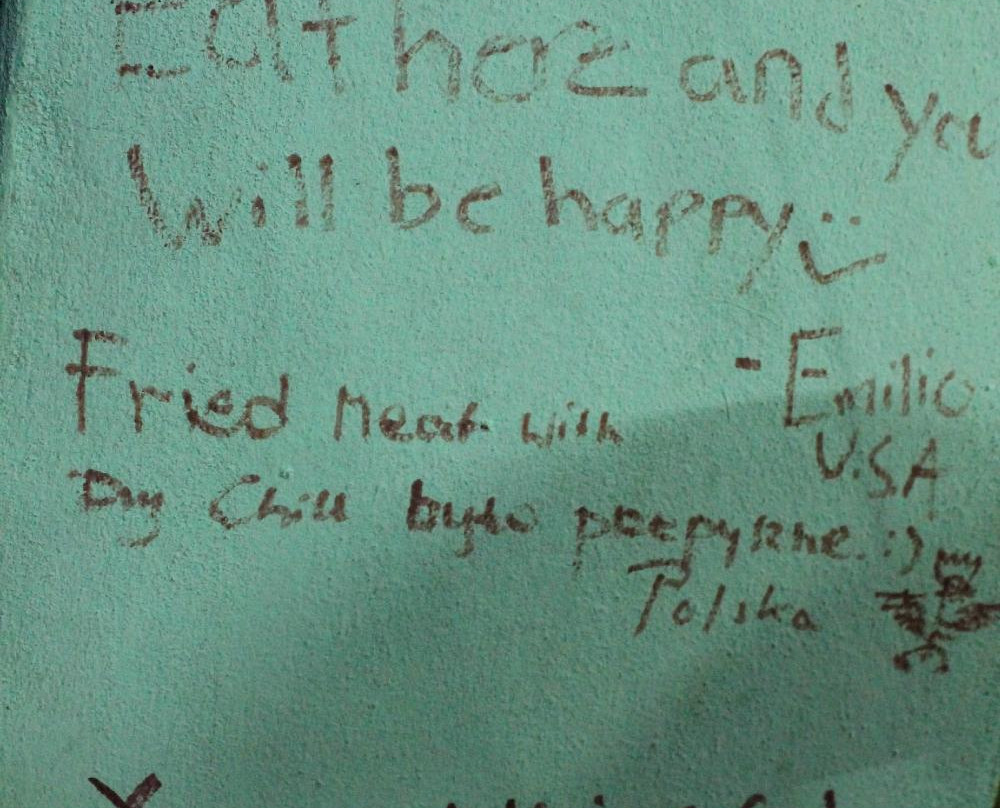 Eat here and you
Will be happy :)
- Emilio
U.S.A
Fried Meat with
Dry Chili było przepyszne. :)
Polska